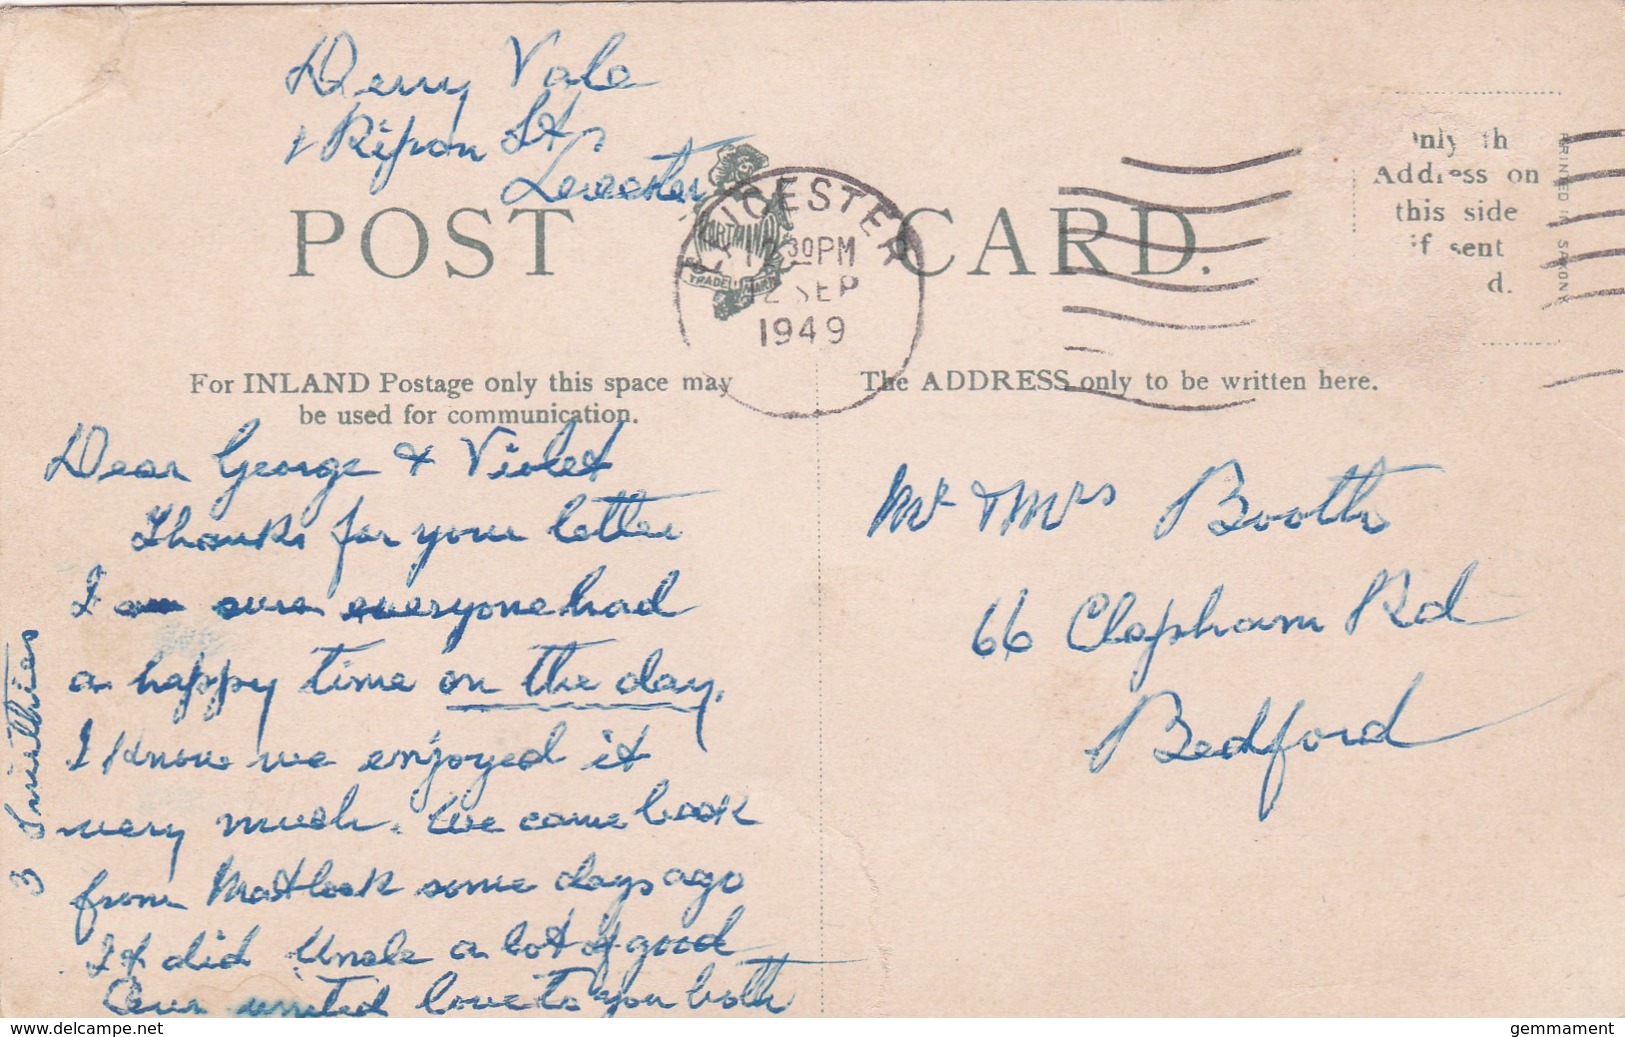 Derry Vale
1 Ripon St
Leicester
POST CARD.
HARTMANN
TRADE MARK
LEICESTER
12 30 PM
12 SEP
1949
nly th
Address on
this side
if sent
d.
PRINTED IN SAXONY
For INLAND Postage only this space may
be used for communication.
The ADDRESS only to be written here.
Dear George & Violet
Thanks for your letter
I am sure everyone had
a happy time on the day.
I know we enjoyed it
very much. We came back
from Matlock some days ago
It did Uncle a lot of good
Our united love to you both
3 Smithies
Mr & Mrs Booth
66 Clapham Rd
Bedford
www.delcampe.net
gemmament